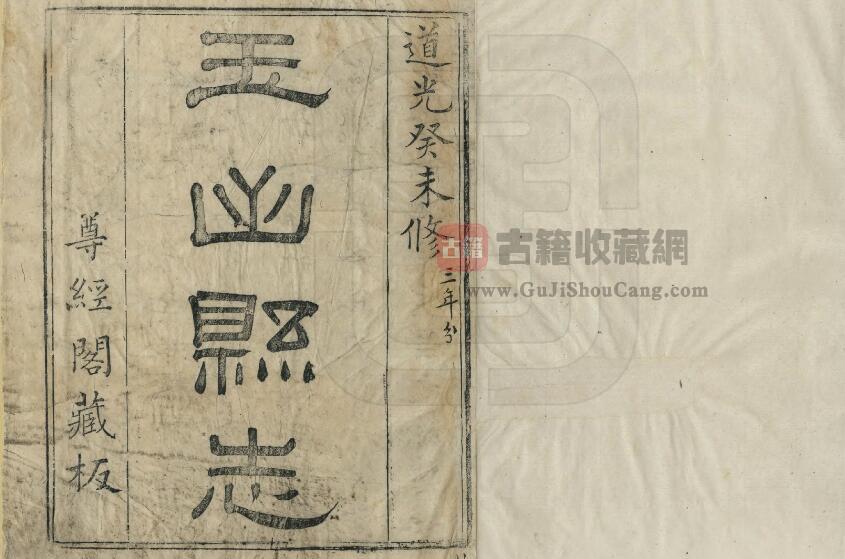 道光癸未修
三年分
玉山縣志
尊經閣藏板
古籍
古籍收藏網
www.GuJiShouCang.com